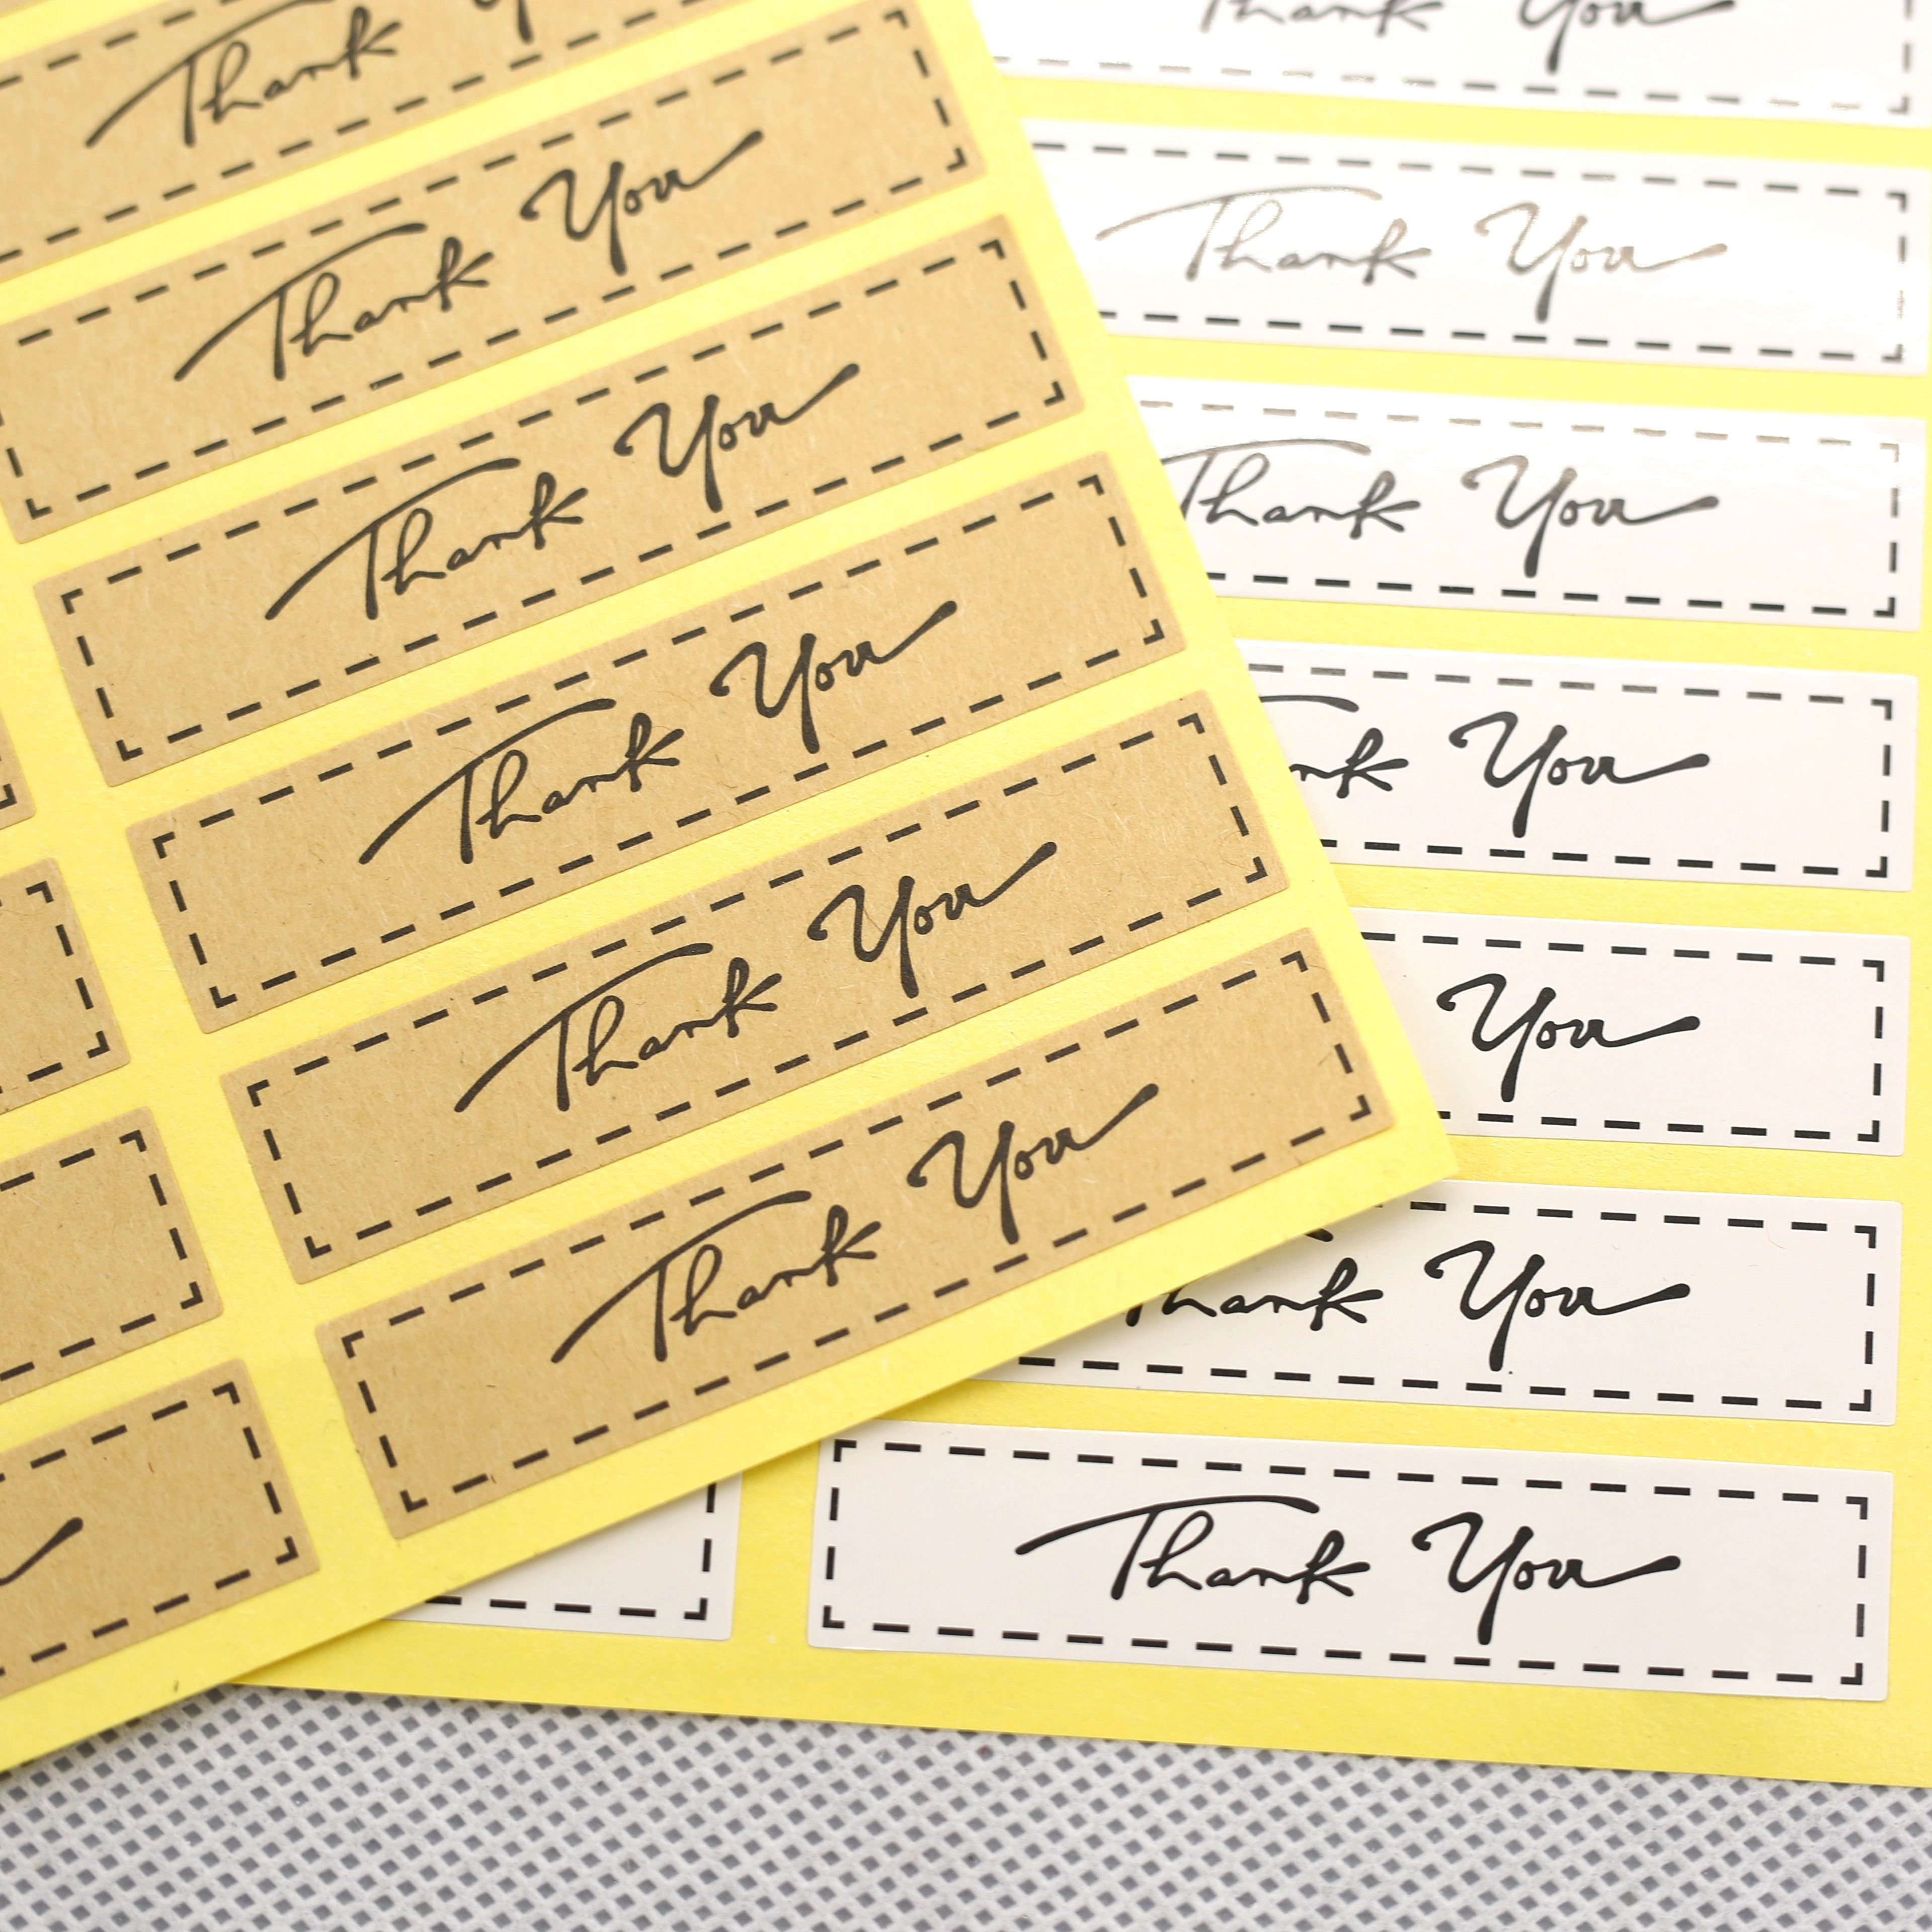 Thank
Thank You
Thank You
Thank You
Thank You
Thank You
Thank You
Thank You
Thank You
Thank You
You
Thank You
Thank You